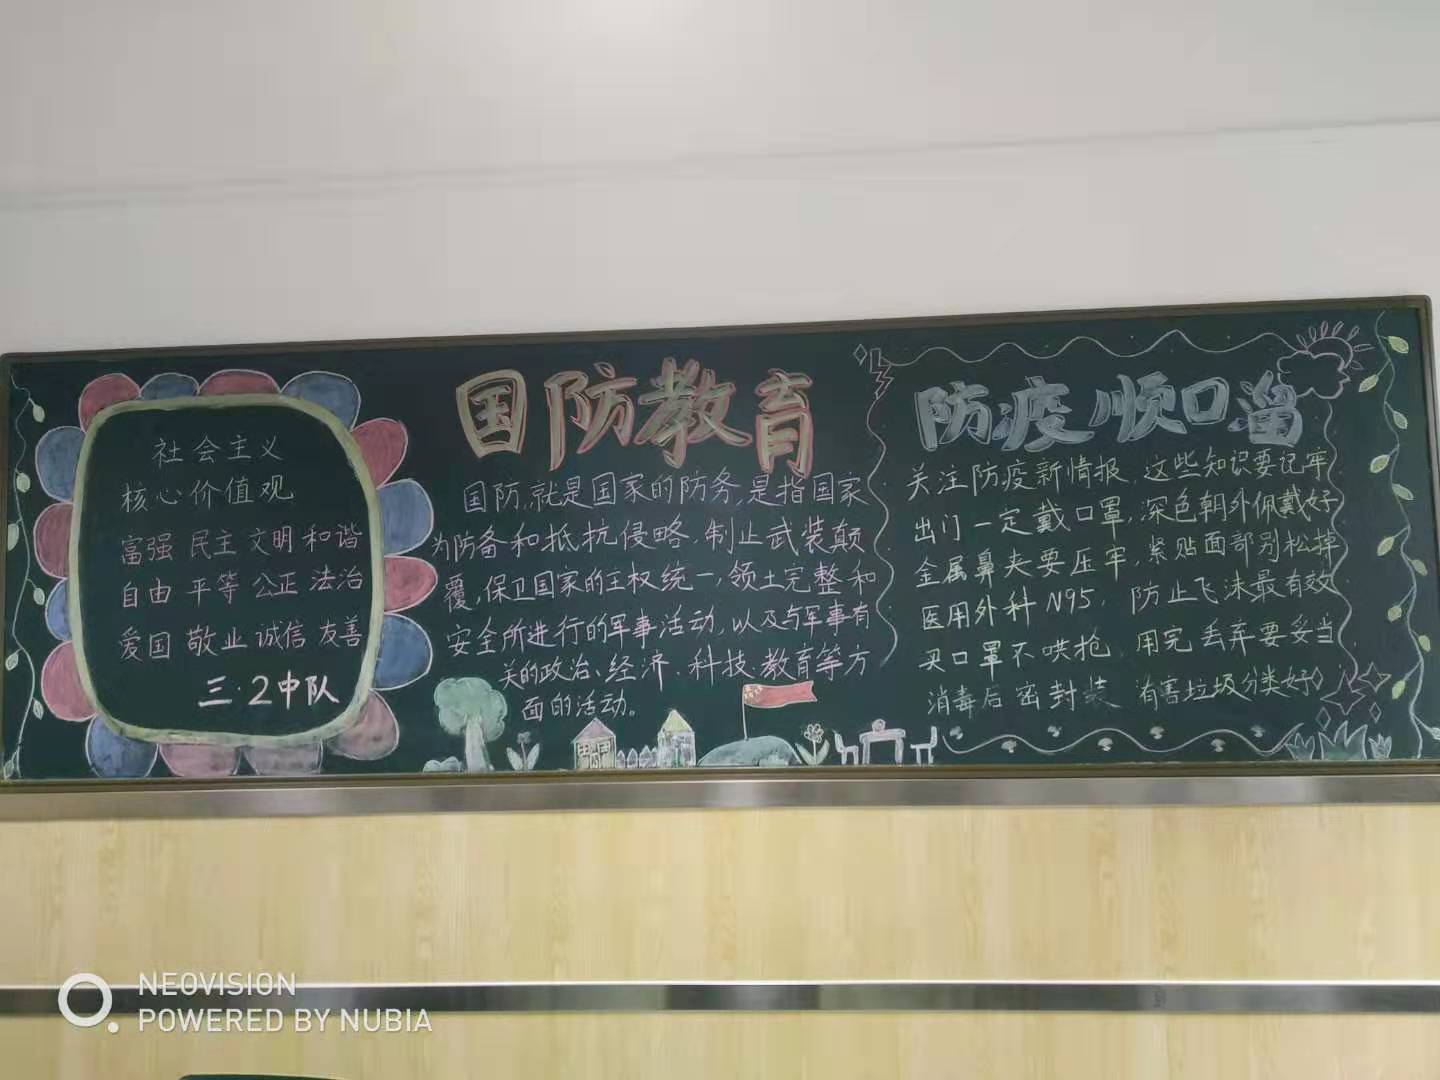 社会主义
核心价值观
富强 民主 文明 和谐
自由 平等 公正 法治
爱国 敬业 诚信 友善
三.2中队
国防教育
国防,就是国家的防务,是指国家
为防备和抵抗侵略,制止武装颠
覆,保卫国家的主权统一,领土完整和
安全所进行的军事活动,以及与军事有
关的政治、经济、科技、教育等方
面的活动。
防疫顺口溜
关注防疫新情报,这些知识要记牢
出门一定戴口罩,深色朝外佩戴好
金属鼻夹要压牢,紧贴面部别松掉
医用外科N95,防止飞沫最有效
买口罩不哄抢 用完丢弃要妥当
消毒后密封装 有害垃圾分类好
NEOVISION
POWERED BY NUBIA